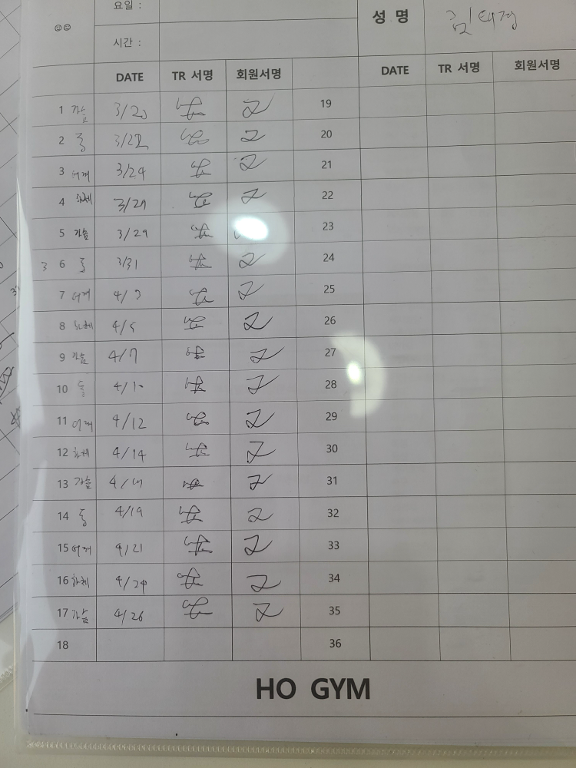 요일 :
성 명 김태경
시간 :
DATE TR 서명 회원서명 DATE TR 서명 회원서명
1 가슴 3/20 19
2 등 3/22 20
3 어깨 3/24 21
4 하체 22
5 가슴 3/29 23
6 등 3/31 24
7 어깨 25
8 하체 4/5 26
9 가슴 4/7 27
10 등 4/10 28
11 어깨 4/12 29
12 하체 4/14 30
13 가슴 31
14 등 4/19 32
15 어깨 4/21 33
16 하체 4/24 34
17 가슴 4/26 35
18 36
HO GYM